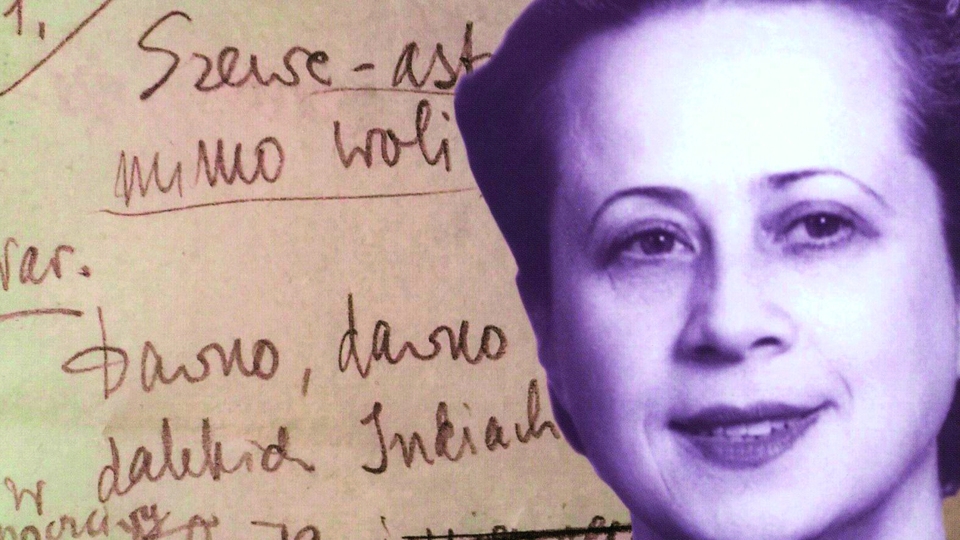 1.
Szewc - ast
mimo woli
Nar.
Dawno, dawno
w dalekich Indiach